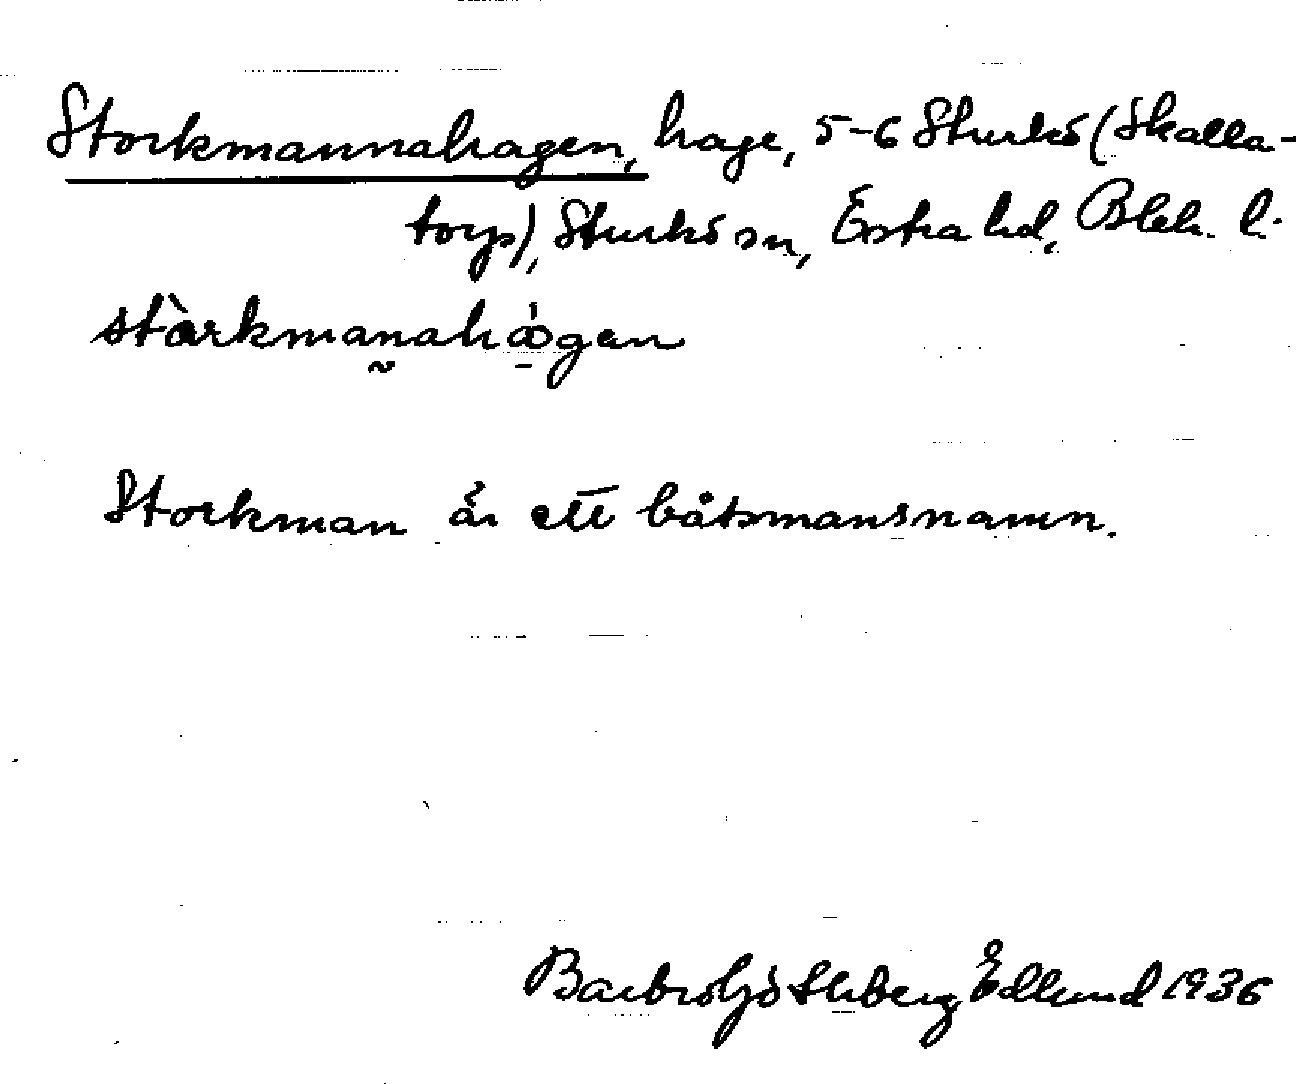 Storkmannahagen, hage, 5-6 Sturkö (Skalla-
torp), Sturkö sn, Östra hd, Blek. l.
stàrkmanahágen
Storkman är ett båtsmansnamn.
Barbro Götherberg Edlund 1936